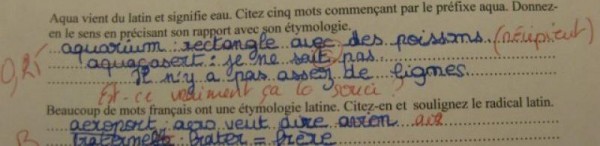 Aqua vient du latin et signifie eau. Citez cinq mots commençant par le préfixe aqua. Donnez-
en le sens en précisant son rapport avec son étymologie.
aquarium : rectangle avec des poissons. (récipient)
0,25 aquagasert : je ne sait pas
Il n'y a pas assez de lignes
Est-ce vraiment ça le souci ?
Beaucoup de mots français ont une étymologie latine. Citez-en et soulignez le radical latin.
aeroport : aero veut dire avion
frater = frère